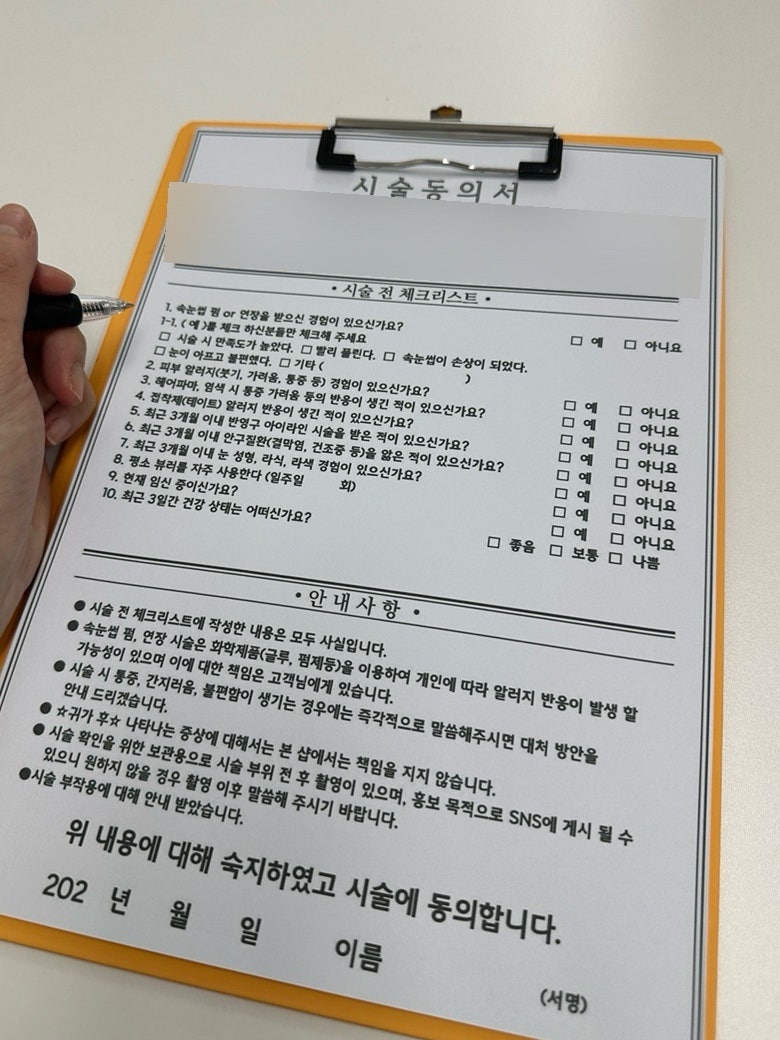 시술동의서
• 시술 전 체크리스트 •
1. 속눈썹 펌 or 연장을 받으신 경험이 있으신가요? □ 예 □ 아니요
1-1. ( 예 )를 체크 하신분들만 체크해 주세요
□ 시술 시 만족도가 높았다. □ 빨리 풀린다. □ 속눈썹이 손상이 되었다.
□ 눈이 아프고 불편했다. □ 기타 ( )
2. 피부 알러지(붓기, 가려움, 통증 등) 경험이 있으신가요? □ 예 □ 아니요
3. 헤어파마, 염색 시 통증 가려움 등의 반응이 생긴 적이 있으신가요? □ 예 □ 아니요
4. 접착제(테이트) 알러지 반응이 생긴 적이 있으신가요? □ 예 □ 아니요
5. 최근 3개월 이내 반영구 아이라인 시술을 받은 적이 있으신가요? □ 예 □ 아니요
6. 최근 3개월 이내 안구질환(결막염, 건조증 등)을 앓은 적이 있으신가요? □ 예 □ 아니요
7. 최근 3개월 이내 눈 성형, 라식, 라색 경험이 있으신가요? □ 예 □ 아니요
8. 평소 뷰러를 자주 사용한다 (일주일 회) □ 예 □ 아니요
9. 현재 임신 중이신가요? □ 예 □ 아니요
10. 최근 3일간 건강 상태는 어떠신가요? □ 좋음 □ 보통 □ 나쁨
• 안내사항 •
● 시술 전 체크리스트에 작성한 내용은 모두 사실입니다.
● 속눈썹 펌, 연장 시술은 화학제품(글루, 펌제등)을 이용하여 개인에 따라 알러지 반응이 발생 할
가능성이 있으며 이에 대한 책임은 고객님에게 있습니다.
● 시술 시 통증, 간지러움, 불편함이 생기는 경우에는 즉각적으로 말씀해주시면 대처 방안을
안내 드리겠습니다.
● ☆귀가 후☆ 나타나는 증상에 대해서는 본 샵에서는 책임을 지지 않습니다.
● 시술 확인을 위한 보관용으로 시술 부위 전 후 촬영이 있으며, 홍보 목적으로 SNS에 게시 될 수
있으니 원하지 않을 경우 촬영 이후 말씀해 주시기 바랍니다.
●시술 부작용에 대해 안내 받았습니다.
위 내용에 대해 숙지하였고 시술에 동의합니다.
202 년 월 일 이름
(서명)